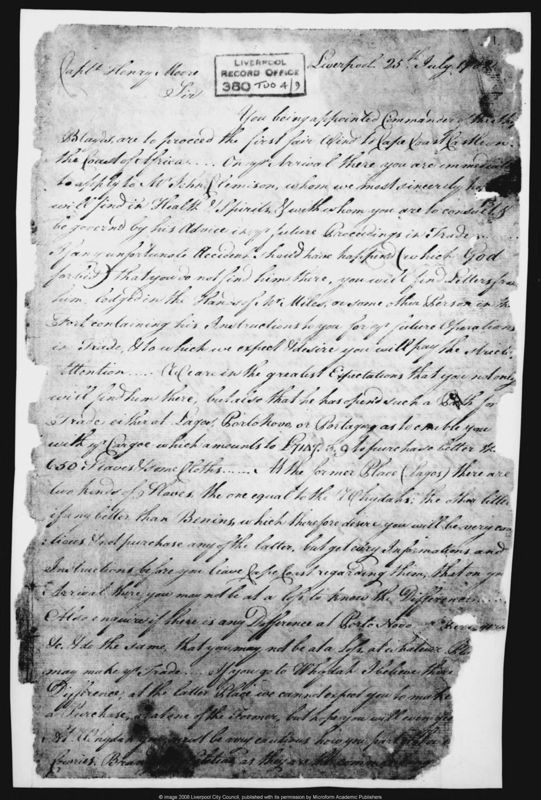 Liverpool 25th July
LIVERPOOL
RECORD OFFICE
380 TUO 4/9
Captn Henry Moore
Sir
You being appointed Commander of the Ship
Blayds, are to proceed the first fair Wind to Cape Coast Castle on
the Coast of Africa.... On yr Arrival there you are immediately
to apply to Mr John Clemison, whom we most sincerely hope
will find in Health & Spirits, & with whom you are to consult &
be govern'd by his Advice in yr future Proceedings in Trade
If any unfortunate Accident should have happened (which God
forbid) that you do not find him there, you will find Letters from
him, lodged in the Hands of Mr Miles, or some other Person in the
Fort containing his Instructions to you for yr future Operations
in Trade, & to which we expect & desire you will pay the strictest
Attention.... We are in the greatest Expectations that you not only
will find him there, but also that he has opened such a Path for
Trade either at Lagos, Porto Novo, or Portagay as to enable you
with yr Cargoe which amounts to to purchase better than
650 Slaves & some Cloths...... At the former Place (Lagos) there are
two kinds of Slaves, the one equal to the Whydahs, the other little
if any better than Benins, which therefore desire you will be very cau
tious & not purchase any of the latter, but get every Information and
Instructions before you leave Cape Coast regarding them, that on your
Arrival there you may not be at a loss to know the Difference.....
Also enquire if there is any Difference at Porto Novo
& do the same, that you may not be at a loss at whatever Place
may make yr Trade.... If you go to Whydah I believe there
Difference, at the latter Place we cannot expect you to make
a Purchase, as at one of the Former, but hope you will
At Whydah you must be very cautious how you part with
Cowries, Brandy as they are all commanding
© image 2008 Liverpool City Council, published with its permission by Microform Academic Publishers